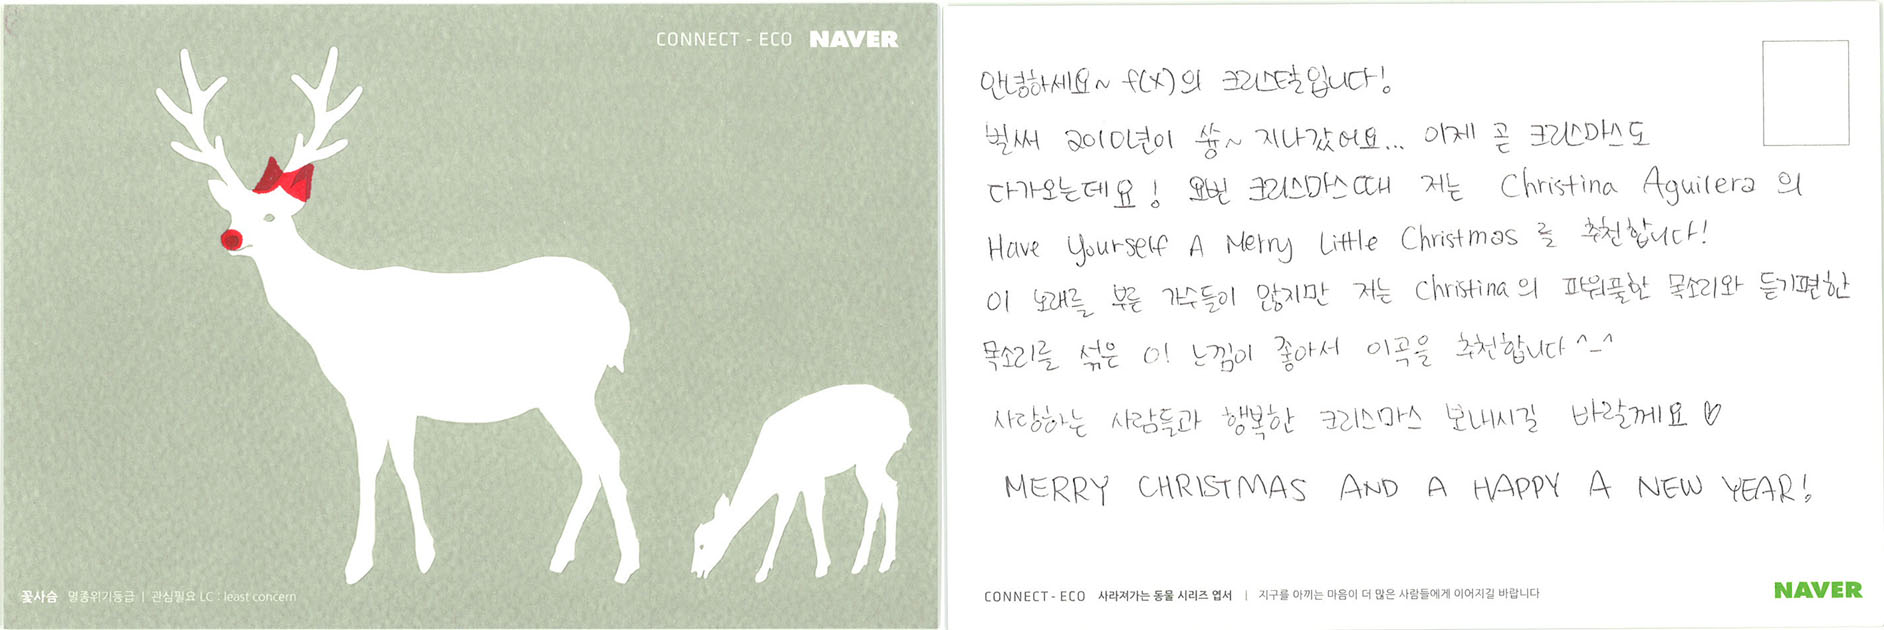 CONNECT - ECO NAVER
꽃사슴 멸종위기등급 | 관심필요 LC : least concern
안녕하세요~ f(x)의 크리스탈입니다!
벌써 2010년이 쓩~ 지나갔어요... 이제 곧 크리스마스도
다가오는데요! 요번 크리스마스때 저는 Christina Aguilera의
Have Yourself A Merry Little Christmas를 추천합니다!
이 노래를 부른 가수들이 많지만 저는 Christina의 파워풀한 목소리와 듣기편한
목소리를 섞은 이! 느낌이 좋아서 이곡을 추천합니다 ^-^
사랑하는 사람들과 행복한 크리스마스 보내시길 바랄께요 ♡
MERRY CHRISTMAS AND A HAPPY A NEW YEAR!
CONNECT - ECO 사라져가는 동물 시리즈 엽서 | 지구를 아끼는 마음이 더 많은 사람들에게 이어지길 바랍니다
NAVER